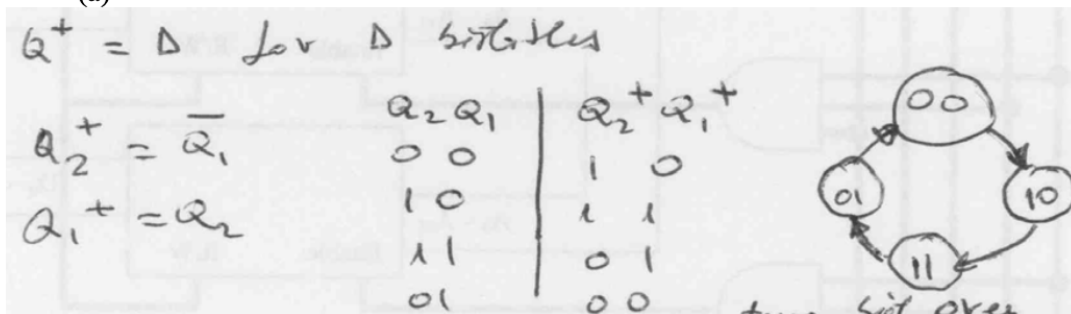 (a)
Q⁺ = D for D bistables
Q₂⁺ = Q̅₁
Q₁⁺ = Q₂
Q₂ Q₁ | Q₂⁺ Q₁⁺
0 0 | 1 0
1 0 | 1 1
1 1 | 0 1
0 1 | 0 0
00
01
10
11